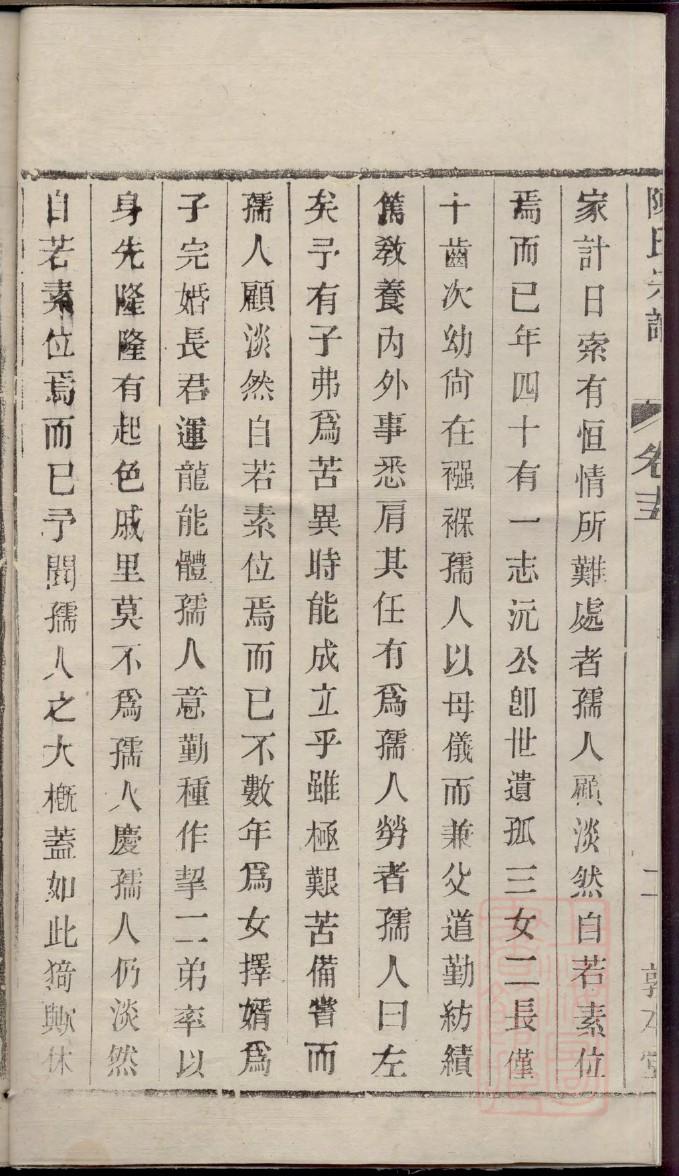 陳氏宗譜 卷十五 二 敦本堂
家計日索有恒情所難處者孺人顧淡然自若素位
焉而已年四十有一志沅公卽世遺孤三女二長僅
十齒次幼尙在襁褓孺人以母儀而兼父道勤紡績
篤敎養內外事悉肩其任有爲孺人勞者孺人曰左
矣予有子弗爲苦異時能成立乎雖極艱苦備嘗而
孺人顧淡然自若素位焉而已不數年爲女擇婿爲
子完婚長君運龍能體孺人意勤種作挈二弟率以
身先隆隆有起色戚里莫不爲孺人慶孺人仍淡然
自若素位焉而已予聞孺人之大槪蓋如此猗歟休